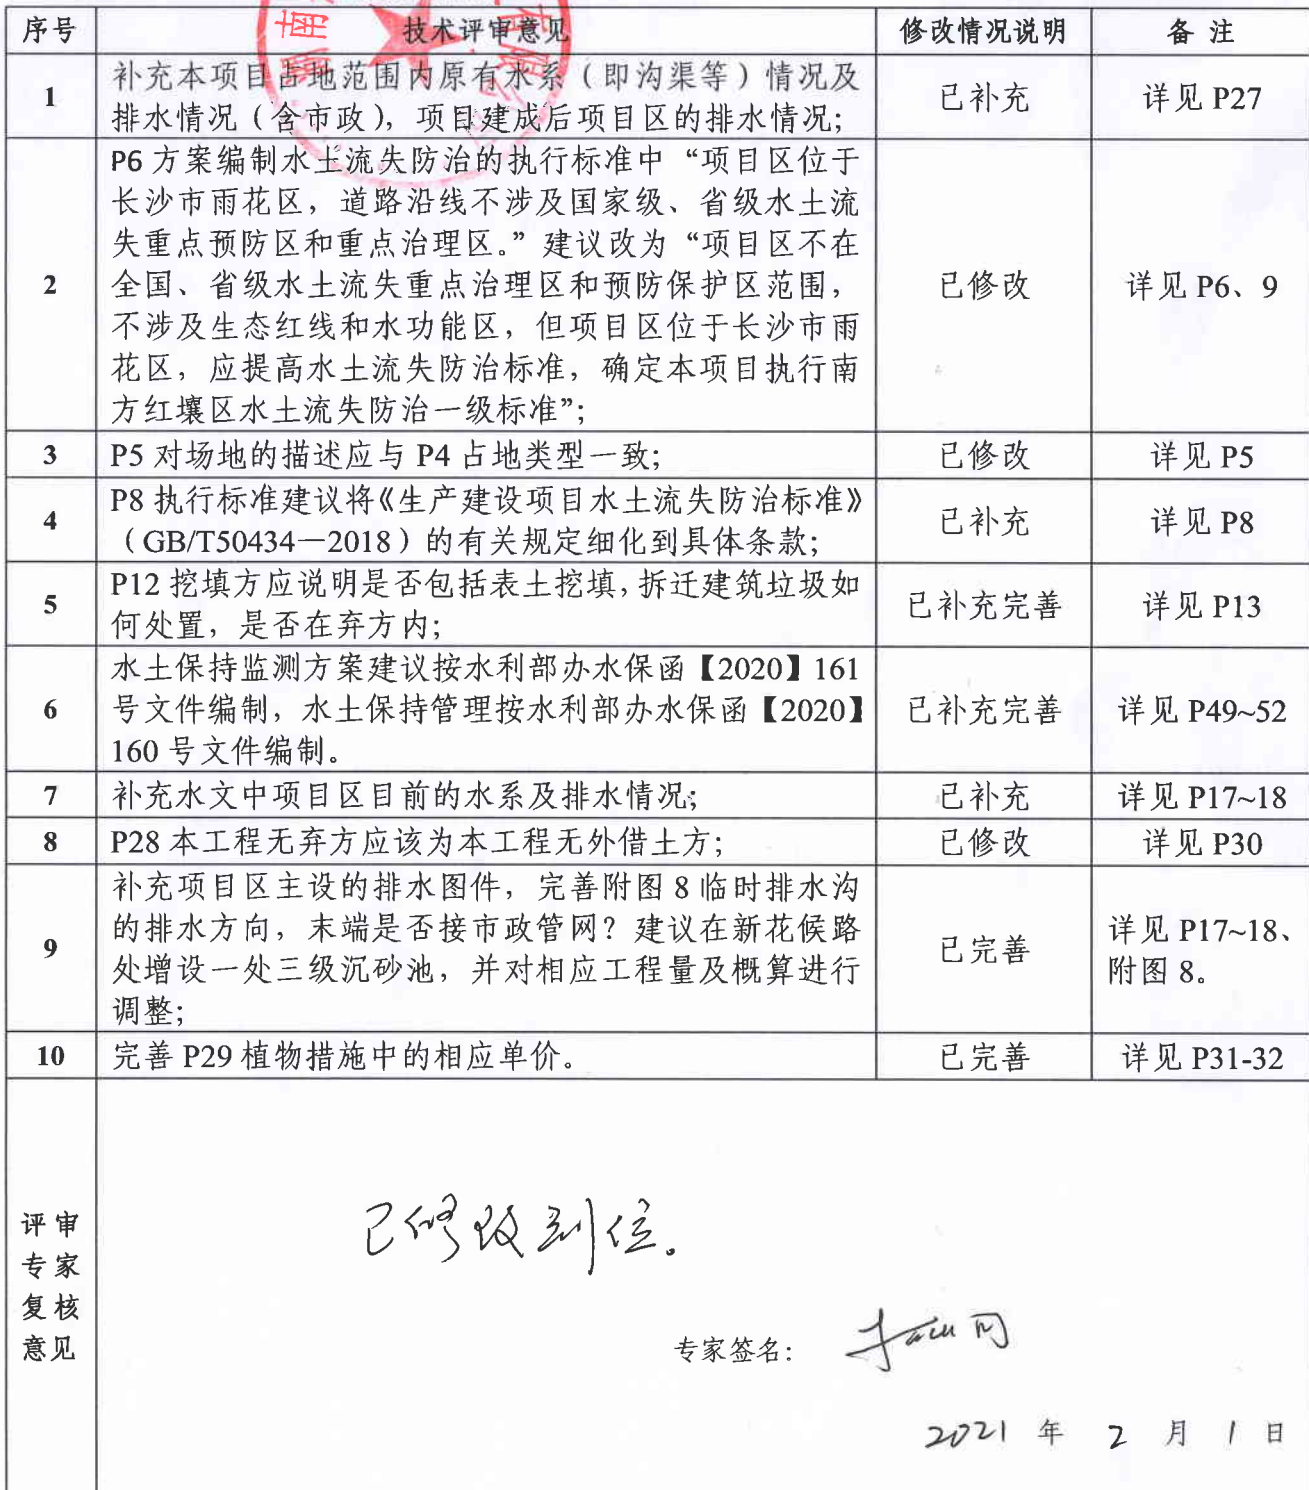 序号 技术评审意见 修改情况说明 备 注
1 补充本项目占地范围内原有水系（即沟渠等）情况及 已补充 详见 P27
排水情况（含市政），项目建成后项目区的排水情况；
P6 方案编制水土流失防治的执行标准中“项目区位于
长沙市雨花区，道路沿线不涉及国家级、省级水土流
失重点预防区和重点治理区。”建议改为“项目区不在
2 全国、省级水土流失重点治理区和预防保护区范围， 已修改 详见 P6、9
不涉及生态红线和水功能区，但项目区位于长沙市雨
花区，应提高水土流失防治标准，确定本项目执行南
方红壤区水土流失防治一级标准”；
3 P5 对场地的描述应与 P4 占地类型一致； 已修改 详见 P5
4 P8 执行标准建议将《生产建设项目水土流失防治标准》 已补充 详见 P8
（GB/T50434—2018）的有关规定细化到具体条款；
5 P12 挖填方应说明是否包括表土挖填，拆迁建筑垃圾如 已补充完善 详见 P13
何处置，是否在弃方内；
水土保持监测方案建议按水利部办水保函【2020】161
6 号文件编制，水土保持管理按水利部办水保函【2020】 已补充完善 详见 P49~52
160 号文件编制。
7 补充水文中项目区目前的水系及排水情况； 已补充 详见 P17~18
8 P28 本工程无弃方应该为本工程无外借土方； 已修改 详见 P30
补充项目区主设的排水图件，完善附图 8 临时排水沟
的排水方向，末端是否接市政管网？建议在新花候路 详见 P17~18、
9 处增设一处三级沉砂池，并对相应工程量及概算进行 已完善 附图 8。
调整；
10 完善 P29 植物措施中的相应单价。 已完善 详见 P31-32
评审
专家
复核
意见
已修改到位。
专家签名：
2021 年 2 月 1 日